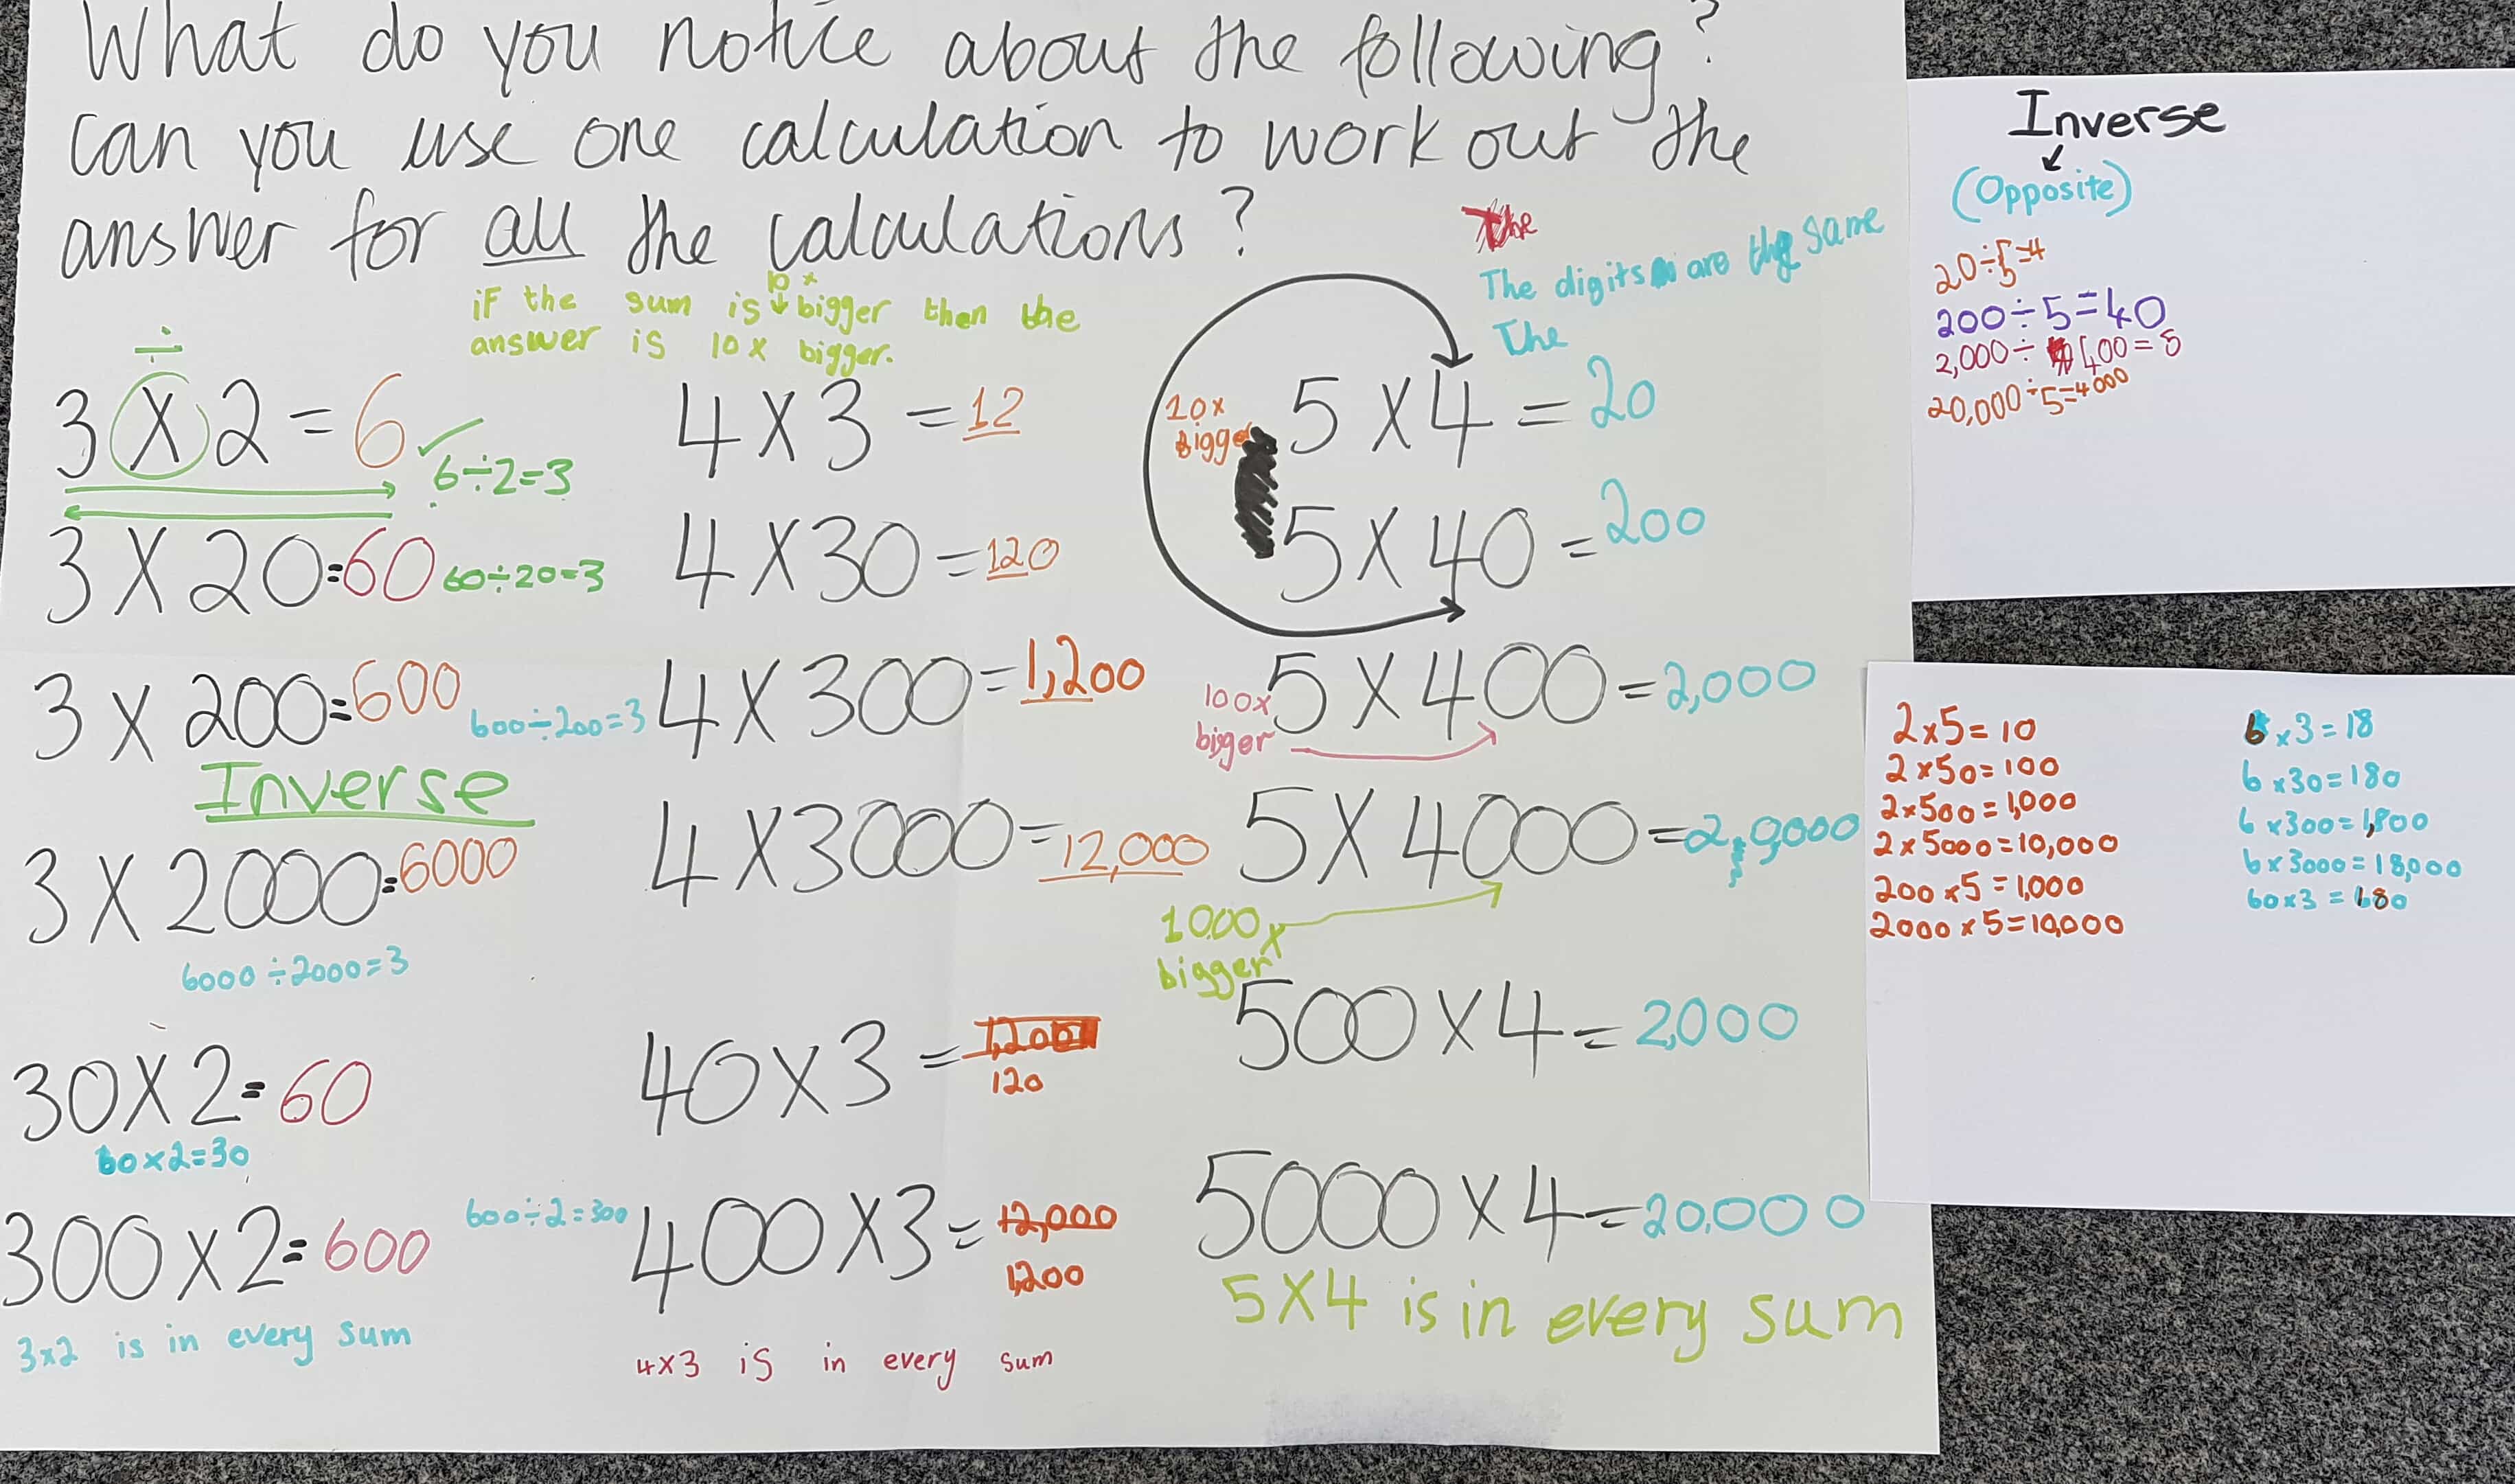 What do you notice about the following?
Can you use one calculation to work out the
answer for all the calculations?
if the sum is 10x bigger then the
answer is 10x bigger.
÷
3 X 2 = 6
6÷2=3
3 X 20=60
60÷20=3
3 X 200=600
600÷200=3
Inverse
3 X 2000=6000
6000÷2000=3
30X2=60
60x2=30
300X2=600
600÷2=300
3x2 is in every sum
4X3=12
4X30=120
4X300=1,200
4X3000=12,000
40X3=1,200
120
400X3=12,000
1,200
4x3 is in every sum
The
The digits are the same
The
10x
Bigger
5X4=20
5X40=200
100x
bigger
5X400=2,000
5X4000=20,000
1000x
bigger
500X4=2,000
5000X4=20,000
5X4 is in every sum
Inverse
(Opposite)
20÷5=4
200÷5=40
2,000÷400=5
20,000÷5=4000
2x5=10
2x50=100
2x500=1,000
2x5000=10,000
200x5=1,000
2000x5=10,000
6x3=18
6x30=180
6x300=1,800
6x3000=18,000
60x3=180